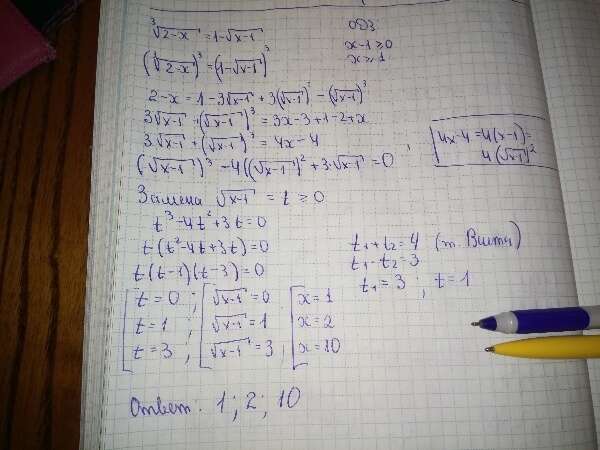 ∛(2-x) = 1-√(x-1)
ОДЗ
x-1 ≥ 0
x ≥ 1
(∛(2-x))³ = (1-√(x-1))³
2-x = 1-3√(x-1) + 3(√(x-1))² - (√(x-1))³
3√(x-1) + (√(x-1))³ = 3x-3+1-2+x
3·√(x-1) + (√(x-1))³ = 4x-4
(√(x-1))³ - 4((√(x-1))² + 3·√(x-1) = 0 ;
4x-4 = 4(x-1) =
4(√(x-1))²
Замена √(x-1) = t ≥ 0
t³-4t²+3t=0
t(t²-4t+3t)=0
t(t-1)(t-3)=0
t₁+t₂=4 (т. Виета)
t₁·t₂=3
t₁=3 ; t=1
t=0 ; √(x-1) = 0 x=1
t=1 ; √(x-1) = 1 x=2
t=3 ; √(x-1) = 3 ; x=10
Ответ: 1; 2; 10